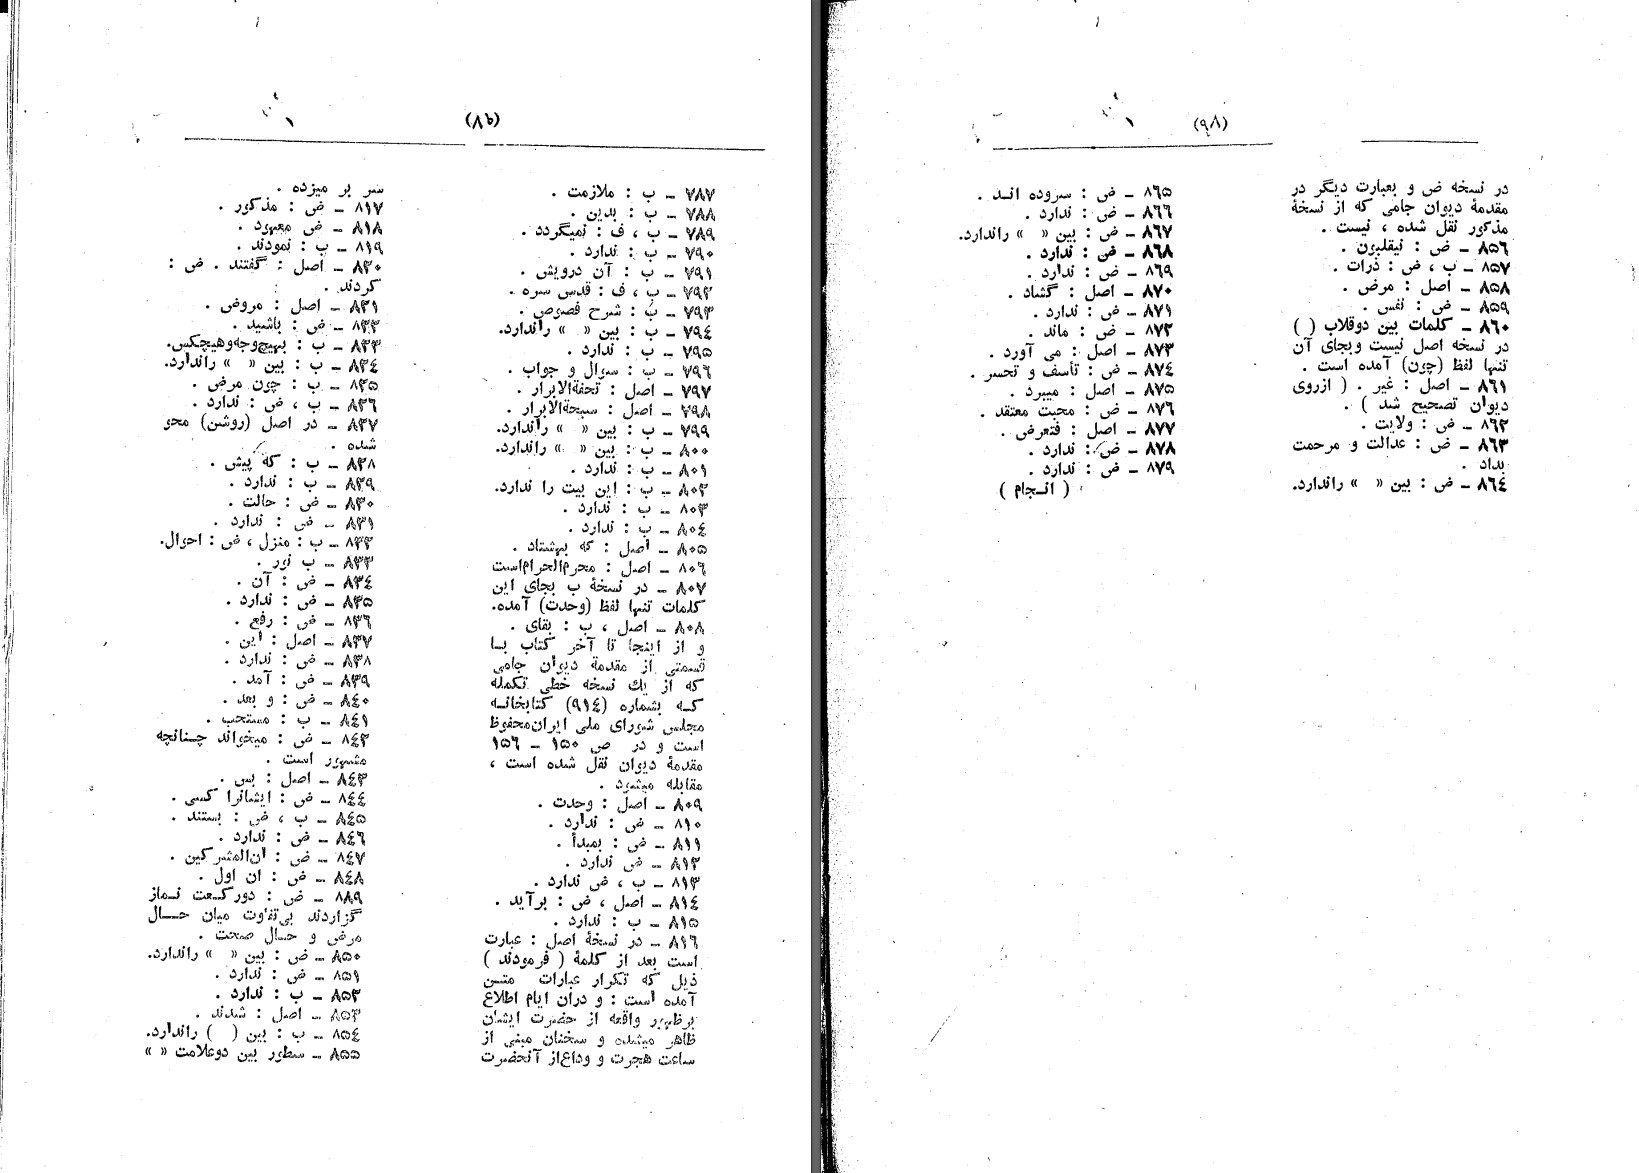 ۷۸۷ ـ ب : ملازمت .
۷۸۸ ـ ب : بدین .
۷۸۹ ـ ب ، ف : نمیگردد .
۷۹۰ ـ ب : ندارد .
۷۹۱ ـ ب : آن درویش .
۷۹۲ ـ ب ، ف : قدس سره .
۷۹۳ ـ ب : شرح فصوص .
۷۹٤ ـ ب : بین « » راندارد.
۷۹۵ ـ ب : ندارد .
۷۹٦ ـ ب : سوال و جواب .
۷۹۷ ـ اصل : تحفةالابرار .
۷۹۸ ـ اصل : سبحةالابرار .
۷۹۹ ـ ب : بین « » راندارد.
۸۰۰ ـ ب : بین « » راندارد.
۸۰۱ ـ ب : ندارد .
۸۰۲ ـ ب : این بیت را ندارد.
۸۰۳ ـ ب : ندارد .
۸۰٤ ـ ب : ندارد .
۸۰۵ ـ اصل : که بهشتاد .
۸۰٦ ـ اصل : محرم‌الحرام‌است
۸۰۷ ـ در نسخهٔ ب بجای این
کلمات تنها لفظ (وحدت) آمده.
۸۰۸ ـ اصل ، ب : بقای .
و از اینجا تا آخر کتاب بـا
قسمتی از مقدمهٔ دیوان جامی
که از یك نسخه خطی تکمله
کـه بشماره (۹۱٤) کتابخانـه
مجلس شورای ملی ایران‌محفوظ
است و در ص ۱۵۰ ـ ۱۵٦
مقدمهٔ دیوان نقل شده است ،
مقابله میشود .
۸۰۹ ـ اصل : وحدت .
۸۱۰ ـ ض : ندارد .
۸۱۱ ـ ض : بمبدأ .
۸۱۲ ـ ض ندارد .
۸۱۳ ـ ب ، ض ندارد .
۸۱٤ ـ اصل ، ض : برآید .
۸۱۵ ـ ب : ندارد .
۸۱٦ ـ در نسخهٔ اصل : عبارت
است بعد از کلمهٔ ( فرمودند )
ذیل که تکرار عبارات متـن
آمده است : و دران ایام اطلاع
برظهور واقعه از حضرت ایشان
ظاهر میشده و سخنان مبنی از
ساعت هجرت و وداع‌از آنحضرت
سر بر میزده .
۸۱۷ ـ ض : مذکور .
۸۱۸ ـ ض معهود .
۸۱۹ ـ ب : نمودند .
۸۲۰ ـ اصل : گفتند . ض :
کردند .
۸۲۱ ـ اصل : مروض .
۸۲۲ ـ ض : باشید .
۸۲۳ ـ ب : بهیچ‌وجه‌وهیچکس.
۸۲٤ ـ ب : بین « » راندارد.
۸۲۵ ـ ب : چون مرض .
۸۲٦ ـ ب ، ض : ندارد .
۸۲۷ ـ در اصل (روشن) محو
شده .
۸۲۸ ـ ب : که پیش .
۸۲۹ ـ ب : ندارد .
۸۳۰ ـ ض : حالت .
۸۳۱ ـ ض : ندارد .
۸۳۲ ـ ب : منزل ، ض : احوال.
۸۳۳ ـ ب نور .
۸۳٤ ـ ض : آن .
۸۳۵ ـ ض : ندارد .
۸۳٦ ـ ض : رفع .
۸۳۷ ـ اصل : این .
۸۳۸ ـ ض : ندارد .
۸۳۹ ـ ض : آمد .
۸٤۰ ـ ض : و بعد .
۸٤۱ ـ ب : مستحب .
۸٤۲ ـ ض : میخواند چـنانچه
مشهور است .
۸٤۳ ـ اصل : بس .
۸٤٤ ـ ض : ایشانرا کسی .
۸٤۵ ـ ب ، ض : بستند .
۸٤٦ ـ ض : ندارد .
۸٤۷ ـ ض : ان‌المشرکین .
۸٤۸ ـ ض : ان اول .
۸۸۹ ـ ض : دورکـعت نـماز
گزاردند بی‌تفاوت میان حـال
مرض و حـال صحت .
۸۵۰ ـ ض : بین « » راندارد.
۸۵۱ ـ ض : ندارد .
۸۵۲ ـ ب : ندارد .
۸۵۳ ـ اصل : شدند .
۸۵٤ ـ ب : بین ( ) راندارد.
۸۵۵ ـ سطور بین دوعلامت « »
(۹۸)
در نسخه ض و بعبارت دیگر در
مقدمهٔ دیوان جامی که از نسخهٔ
مذکور نقل شده ، نیست .
۸۵٦ ـ ض : نیقلبون .
۸۵۷ ـ ب ، ض : ذرات .
۸۵۸ ـ اصل : مرض .
۸۵۹ ـ ض : نفس .
۸٦۰ ـ کلمات بین دوقلاب ( )
در نسخه اصل نیست وبجای آن
تنها لفظ (چون) آمده است .
۸٦۱ ـ اصل : غیر . ( ازروی
دیوان تصحیح شد ) .
۸٦۲ ـ ض : ولایت .
۸٦۳ ـ ض : عدالت و مرحمت
بداد .
۸٦٤ ـ ض : بین « » راندارد.
۸٦۵ ـ ض : سروده انـد .
۸٦٦ ـ ض : ندارد .
۸٦۷ ـ ض : بین « » راندارد.
۸٦۸ ـ ض : ندارد .
۸٦۹ ـ ض : ندارد .
۸۷۰ ـ اصل : گشاد .
۸۷۱ ـ ض : ندارد .
۸۷۲ ـ ض : ماند .
۸۷۳ ـ اصل : می آورد .
۸۷٤ ـ ض : تأسف و تحسر .
۸۷۵ ـ اصل : میبرد .
۸۷٦ ـ ض : محبت معتقد .
۸۷۷ ـ اصل : فتعرض .
۸۷۸ ـ ض : ندارد .
۸۷۹ ـ ض : ندارد .
( انـجام )